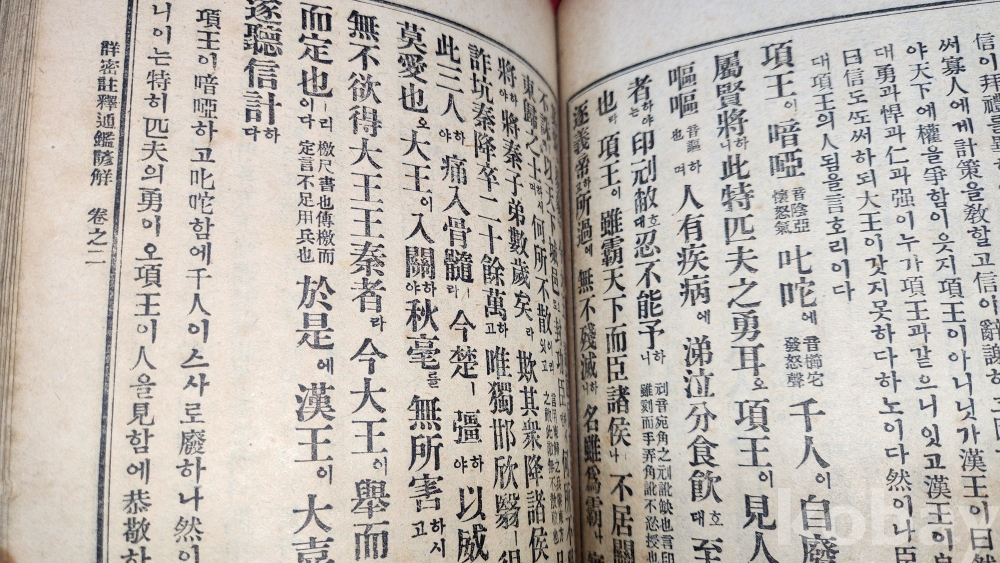 信이拜禮를
써寡人에게計策을敎할고信이辭謝하
야天下에權을爭함이웃지項王이아니닛가漢王이曰然
대勇과悍과仁과强이누가項王과같으니잇고漢王이自
曰信도또써하되大王이갓지못하다하노이다然이나臣
대項王의人됨을言호리이다
項王이暗啞音陰亞懷怒氣叱咤에音櫛宅發怒聲千人이自廢
屬賢將하니此特匹夫之勇耳오項王이見人
嘔嘔音謳也하며人有疾病에涕泣分食飮호대至
者는하야印刓敝호대忍不能予하니刓音宛角之刓訛缺也言印雖刻而手弄角訛不忍授也
也라項王이雖霸天下而臣諸侯나不居關
逐義帝하고所過에無不殘滅하니名雖爲霸나
東歸之士하시며何所不散이잇고
將하야將秦子弟數歲矣라欺其衆降諸侯
詐坑秦降卒二十餘萬하고唯獨邯欣翳ㅣ得
此三人하야痛入骨髓라今楚ㅣ彊하야以威
莫愛也오大王이入關하야秋毫를無所害하시고
無不欲得大王王秦者라今大王이擧而
而定也ㅣ리이다檄尺書也傳檄而定言不足用兵也於是에漢王이大喜
遂聽信計하다
項王이暗啞하고叱咤함에千人이스사로廢하나然이
니이는特히匹夫의勇이오項王이人을見함에恭敬하
群密註釋通鑑諺解 卷之二